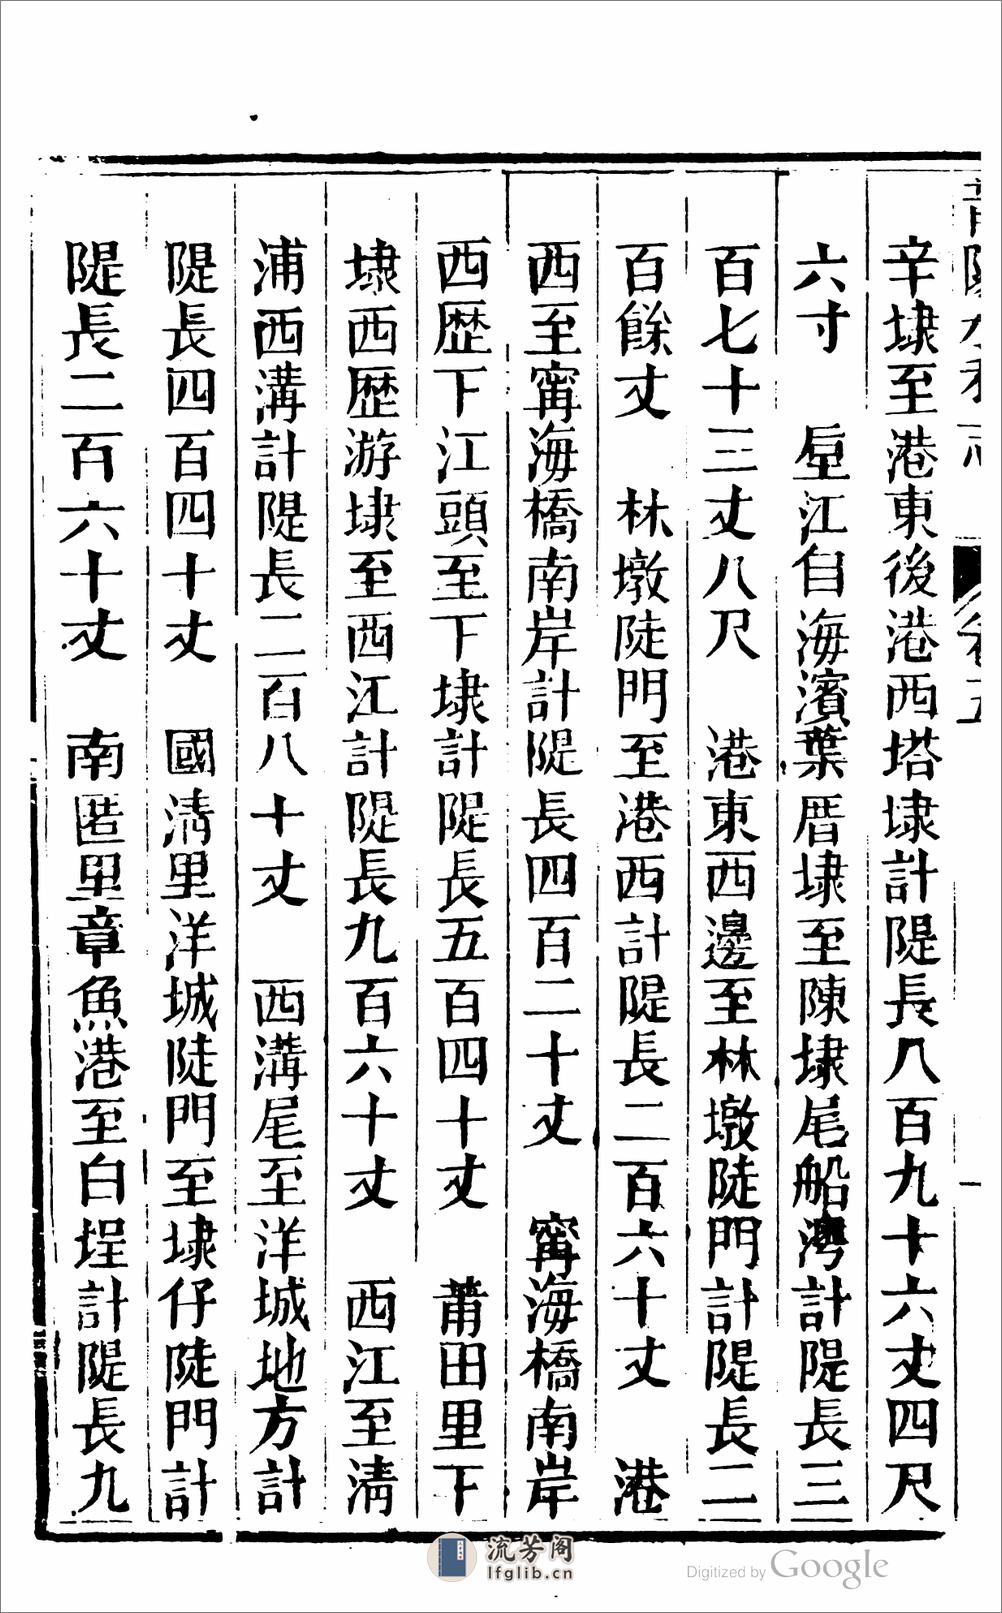 辛埭至港東後港西塔埭計隄長八百九十六丈四尺
六寸　㘴江自海濱葉厝埭至陳埭尾船灣計隄長三
百七十三丈八尺　港東西邊至林墩陡門計隄長二
百餘丈　林墩陡門至港西計隄長二百六十丈　港
西至甯海橋南岸計隄長四百二十丈　甯海橋南岸
西歷下江頭至下埭計隄長五百四十丈　莆田里下
埭西歷游埭至西江計隄長九百六十丈　西江至清
浦西溝計隄長二百八十丈　西溝尾至洋城地方計
隄長四百四十丈　國清里洋城陡門至埭仔陡門計
隄長二百六十丈　南匿里章魚港至白埕計隄長九
流芳阁
lfglib.cn
Digitized by Google